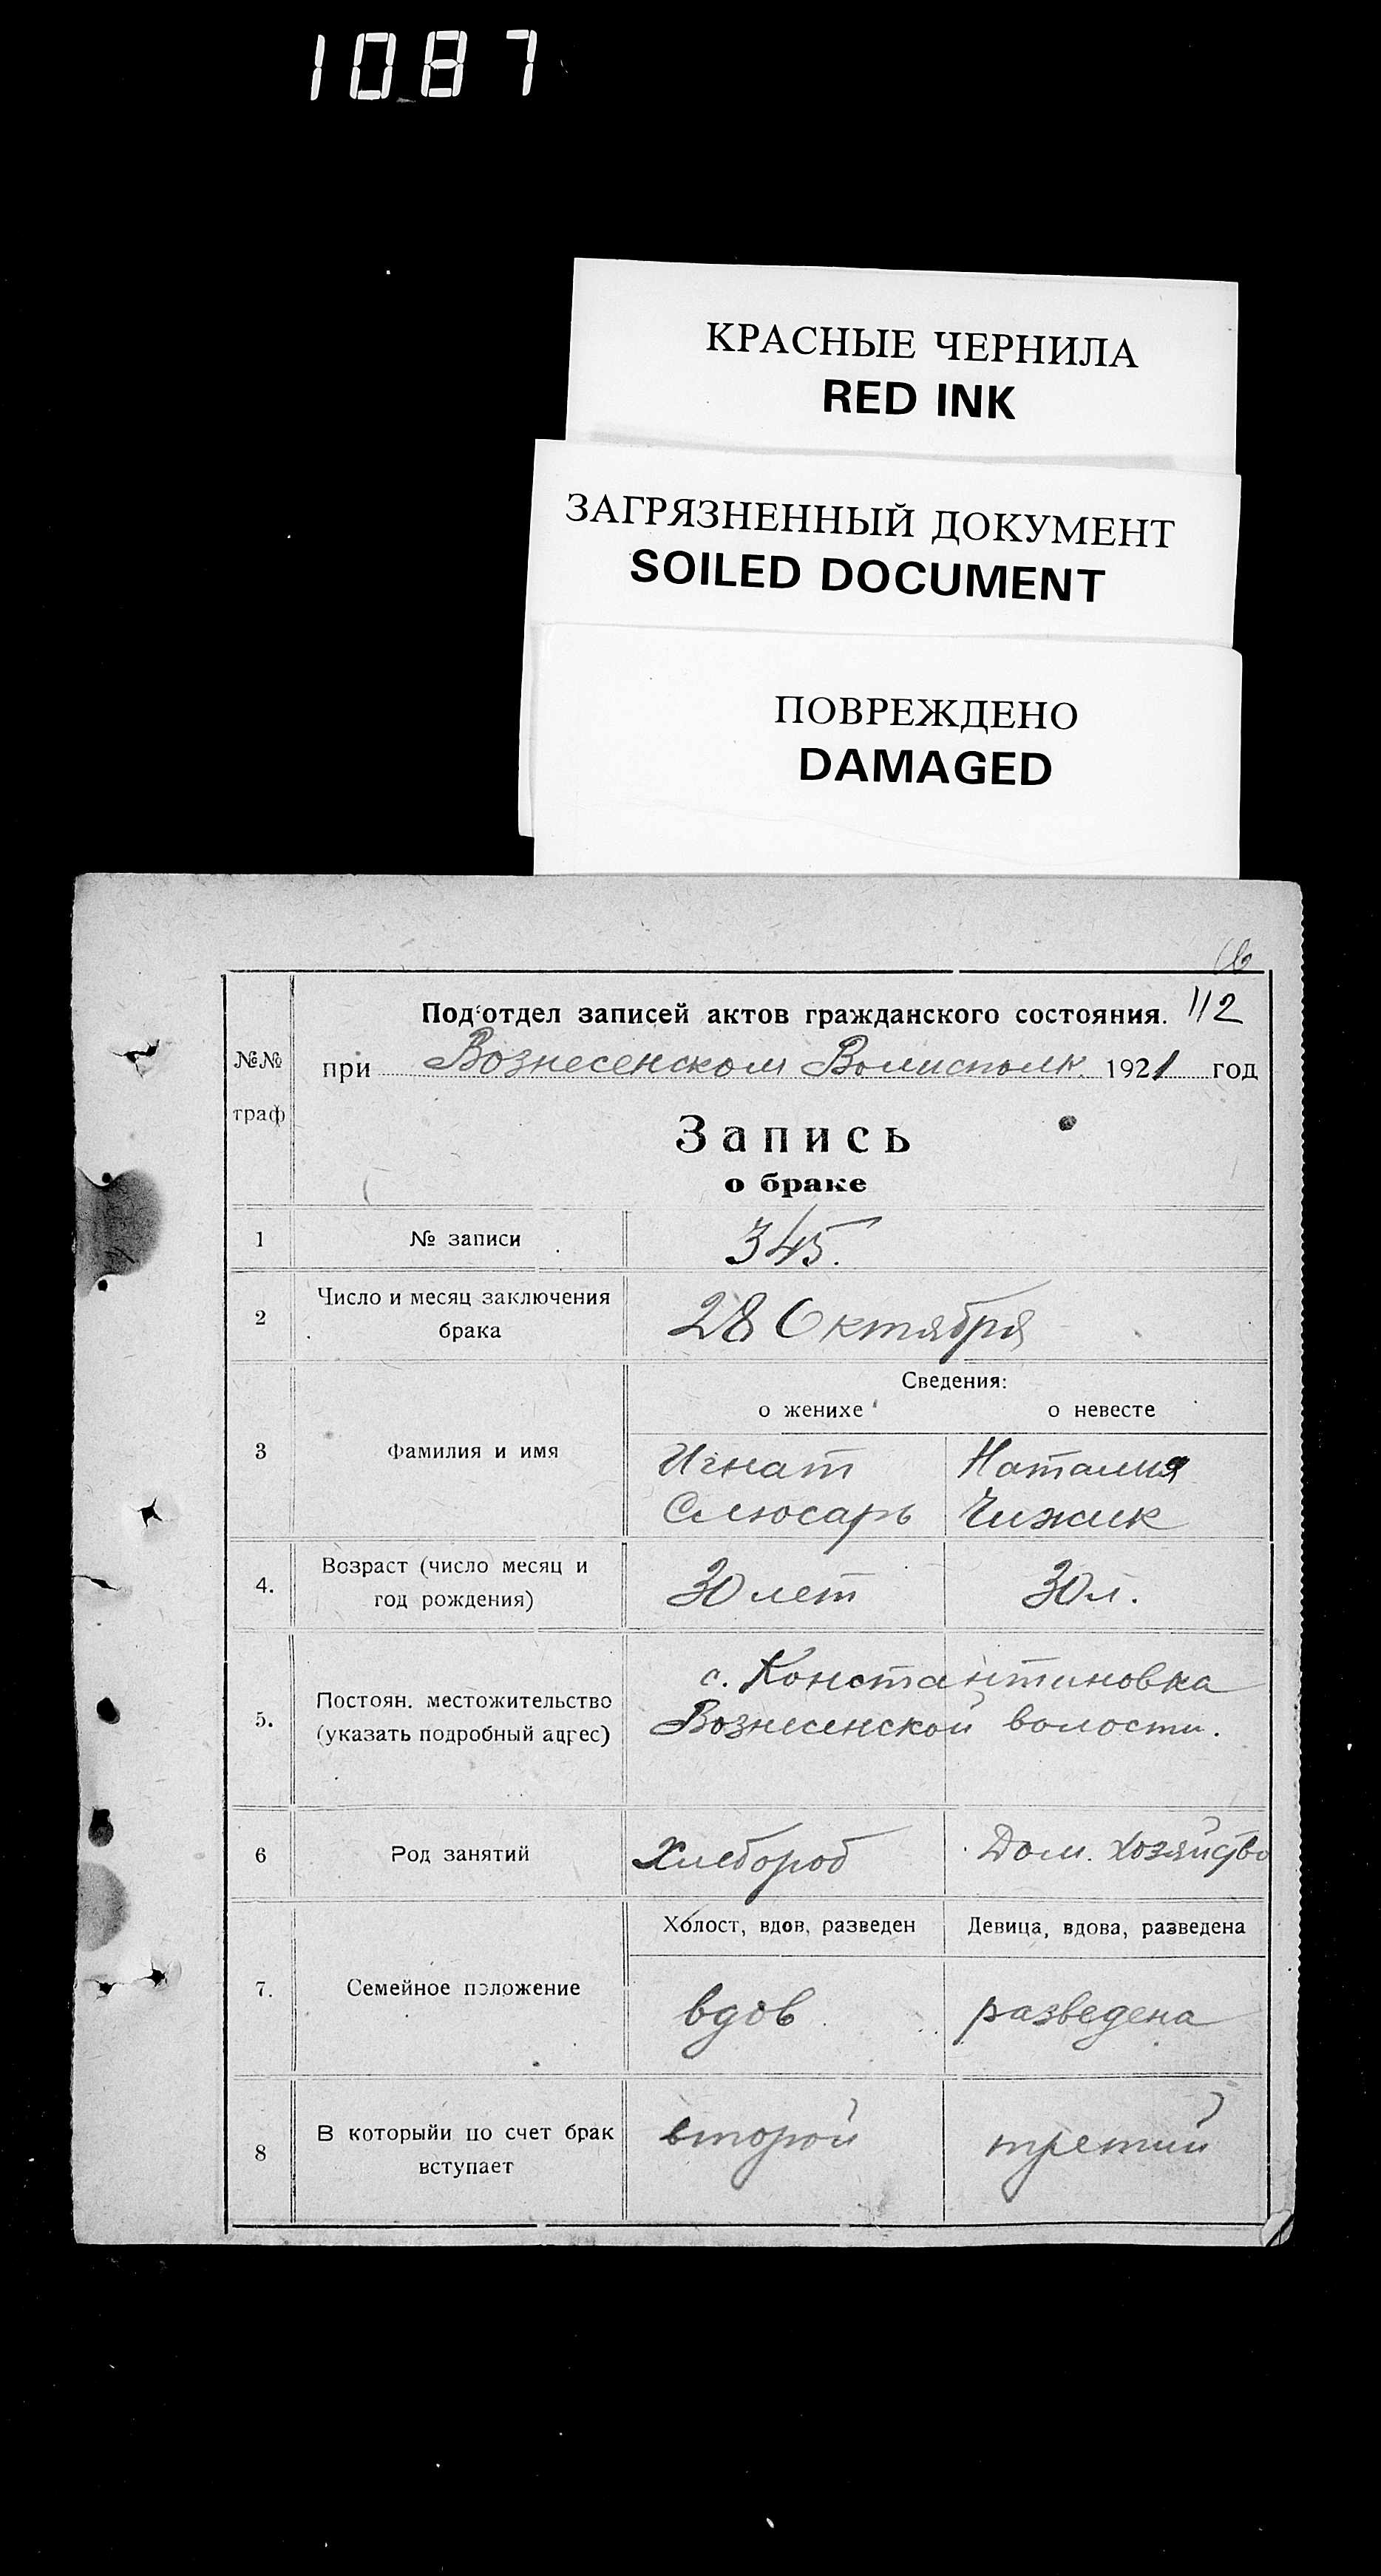 1087
КРАСНЫЕ ЧЕРНИЛА
RED INK
ЗАГРЯЗНЕННЫЙ ДОКУМЕНТ
SOILED DOCUMENT
ПОВРЕЖДЕНО
DAMAGED
112
№№
граф
Под'отдел записей актов гражданского состояния.
при Вознесенском Волисполк. 1921 год
Запись
о браке
1 № записи 345.
2 Число и месяц заключения
брака
28 Октября
Сведения:
о женихе о невесте
3 Фамилия и имя
Игнат Наталия
Слюсарь Чижик
4. Возраст (число месяц и
год рождения)
30 лет 30 л.
5. Постоян. местожительство
(указать подробный адрес)
с. Константиновка
Вознесенской волости.
6 Род занятий Хлебороб Дом. хозяйство
7. Семейное положение
Холост, вдов, разведен Девица, вдова, разведена
вдов разведена
8 В которыйи по счет брак
вступает
второй третий